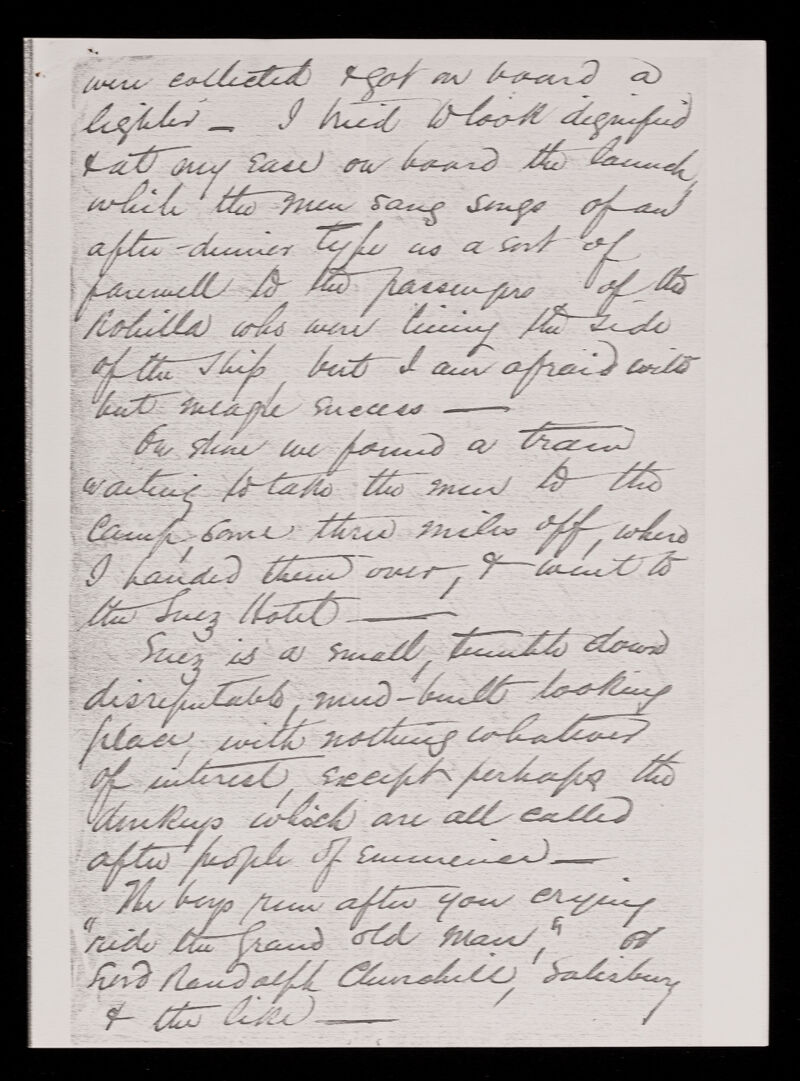 were collected & got on board a
lighter — I tried to look dignified
& at my ease on board the launch,
while the men sang songs of an
after-dinner type as a sort of
farewell to the passengers of the
Rohilla who were lining the side
of the ship, but I am afraid with
but meagre success —
On shore we found a train
waiting to take the men to the
Camp, some three miles off, where
I handed them over, & went to
the Suez Hotel —
Suez is a small, tumble down
disreputable, mud-built looking
place, with nothing whatever
of interest, except perhaps the
donkeys which are all called
after people of eminence —
The boys run after you crying
"ride the Grand old Man," or
Lord Randolph Churchill, Salisbury
& the like —